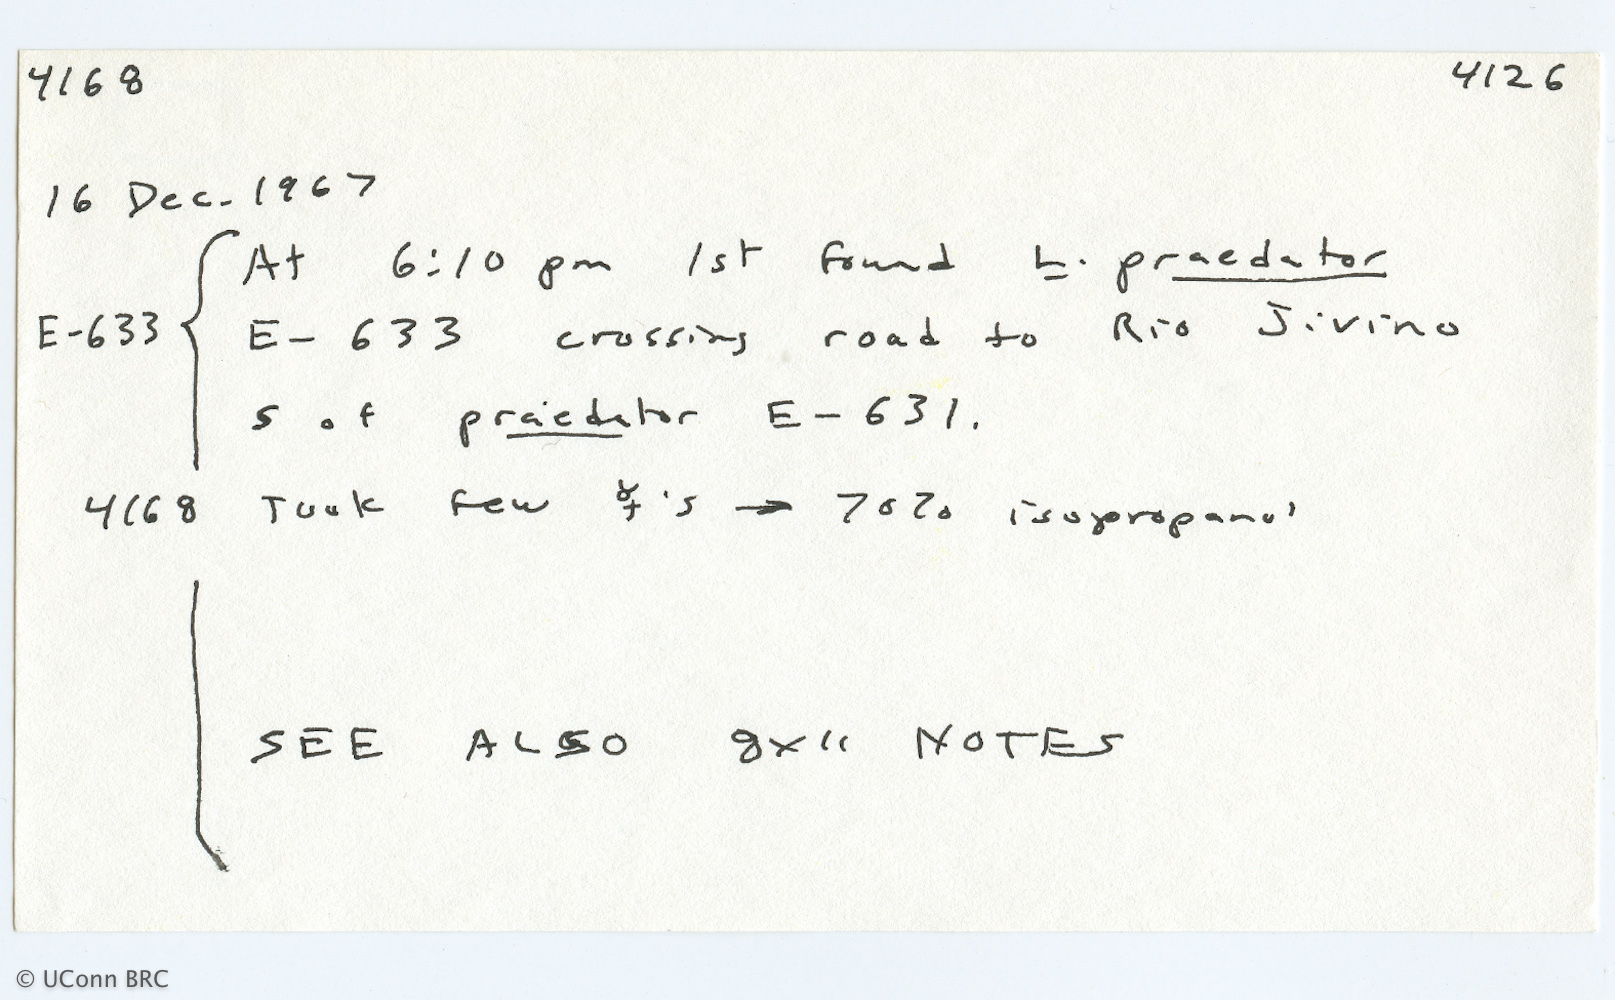 4168 4126
16 Dec. 1967
At 6:10 pm 1st found L. praedator
E-633 E-633 crossing road to Rio Jivino
S of praedator E-631.
4168 Took few ☿'s → 70% isopropanol
SEE ALSO 8x11 NOTES
© UConn BRC